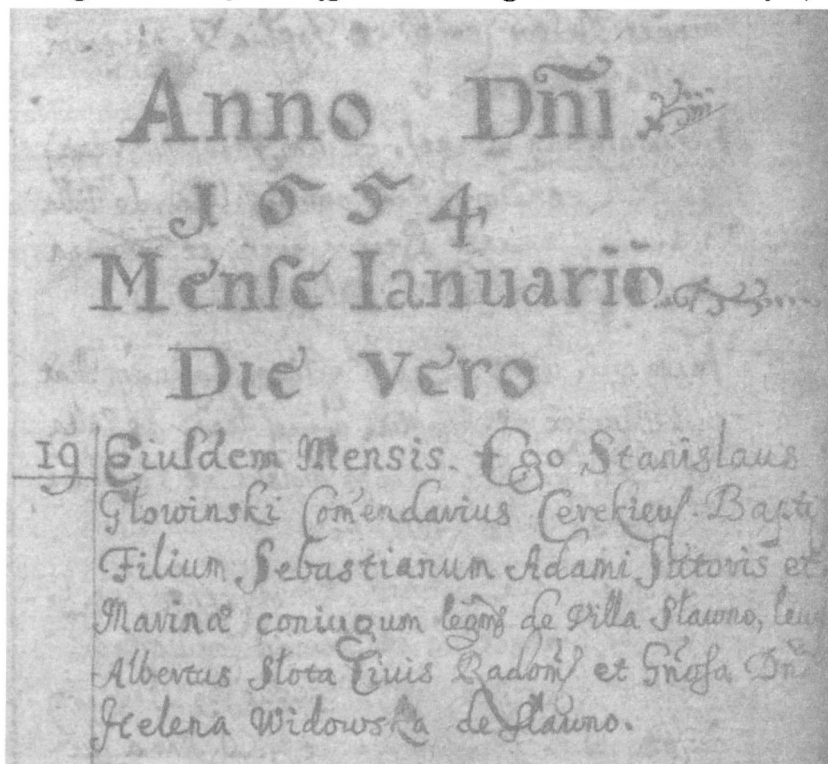 Anno Dñi
1654
Mense Ianuario
Die Vero
19 Eiusdem Mensis. Ego Stanislaus
Głowinski Com̃endarius Cerekieṽ. Bapti
Filium Sebastianum Adami Sutoris et
Marinæ coniugum legm̃ de Villa Sławno, leu
Albertus Slota Civis Radom̃ et Gñosa Dñ
Helena Widowska de Sławno.